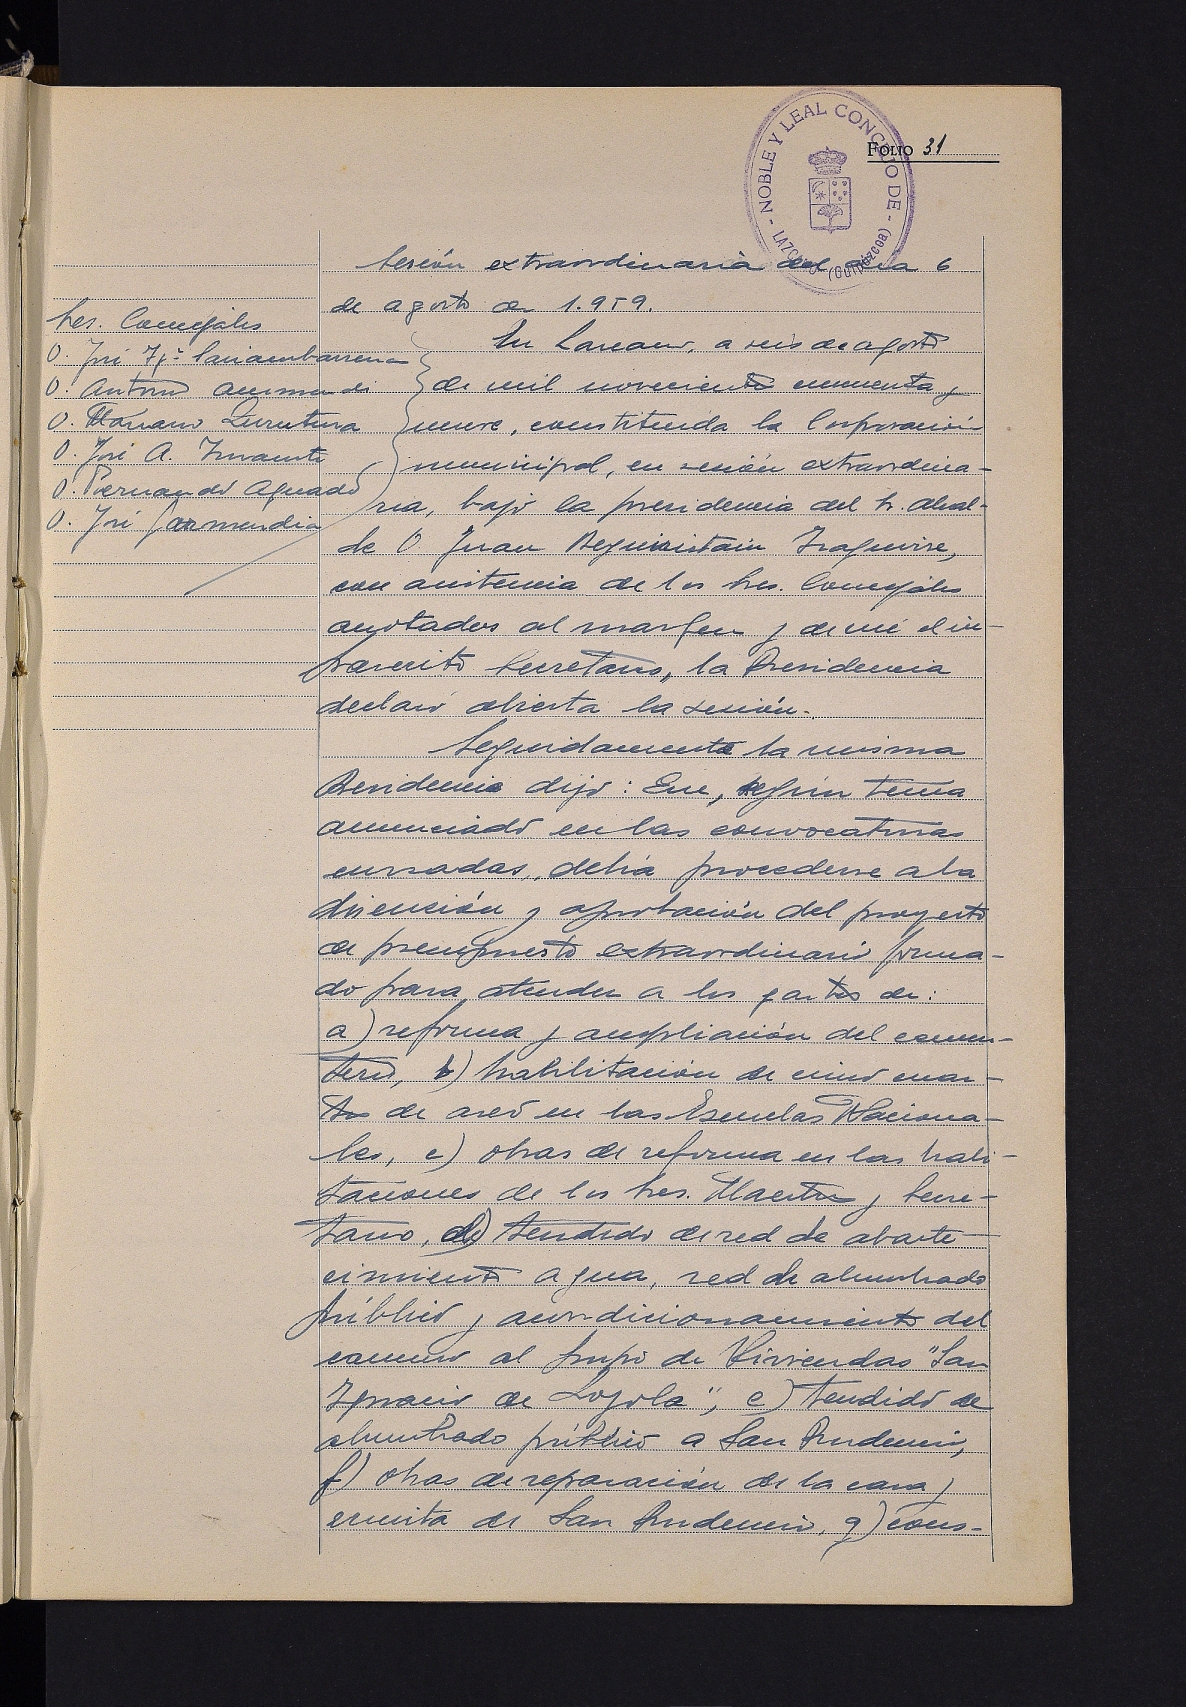 NOBLE Y LEAL CONCEJO DE - LAZCANO (Guipúzcoa)
FOLIO 31
Sesión extraordinaria del día 6
de agosto de 1.959.
Sres. Concejales
D. José Igº
D. Antonio
D. Mariano
D. José A.
D. Fernando Aguado
D. José Garmendia
En Lazcano, a seis de agosto
de mil novecientos cincuenta y
nueve, constituida la Corporación
municipal, en sesión extraordina-
ria, bajo la presidencia del Sr. Alcal-
de D Juan Beguiristain
con asistencia de los Sres. Concejales
anotados al margen y de mí el in-
frascrito Secretario, la Presidencia
declaró abierta la sesión.
Seguidamente la misma
Presidencia dijo: Que, según tema
anunciado en las convocatorias
cursadas, debía procederse a la
discusión y aprobación del proyecto
de presupuesto extraordinario forma-
do para atender a los gastos de:
a) reforma y ampliación del cemen-
terio, b) habilitación de cinco cuar-
tos de aseo en las Escuelas Naciona-
les, c) obras de reforma en las habi-
taciones de los Sres. Maestro y Secre-
tario, d) tendido de red de abaste-
cimiento agua, red de alumbrado
público y acondicionamiento del
camino al grupo de Viviendas "San
Ignacio de Loyola", e) tendido de
alumbrado público a San Prudencio,
f) obras de reparación de la casa y
ermita de San Prudencio, g) cons-